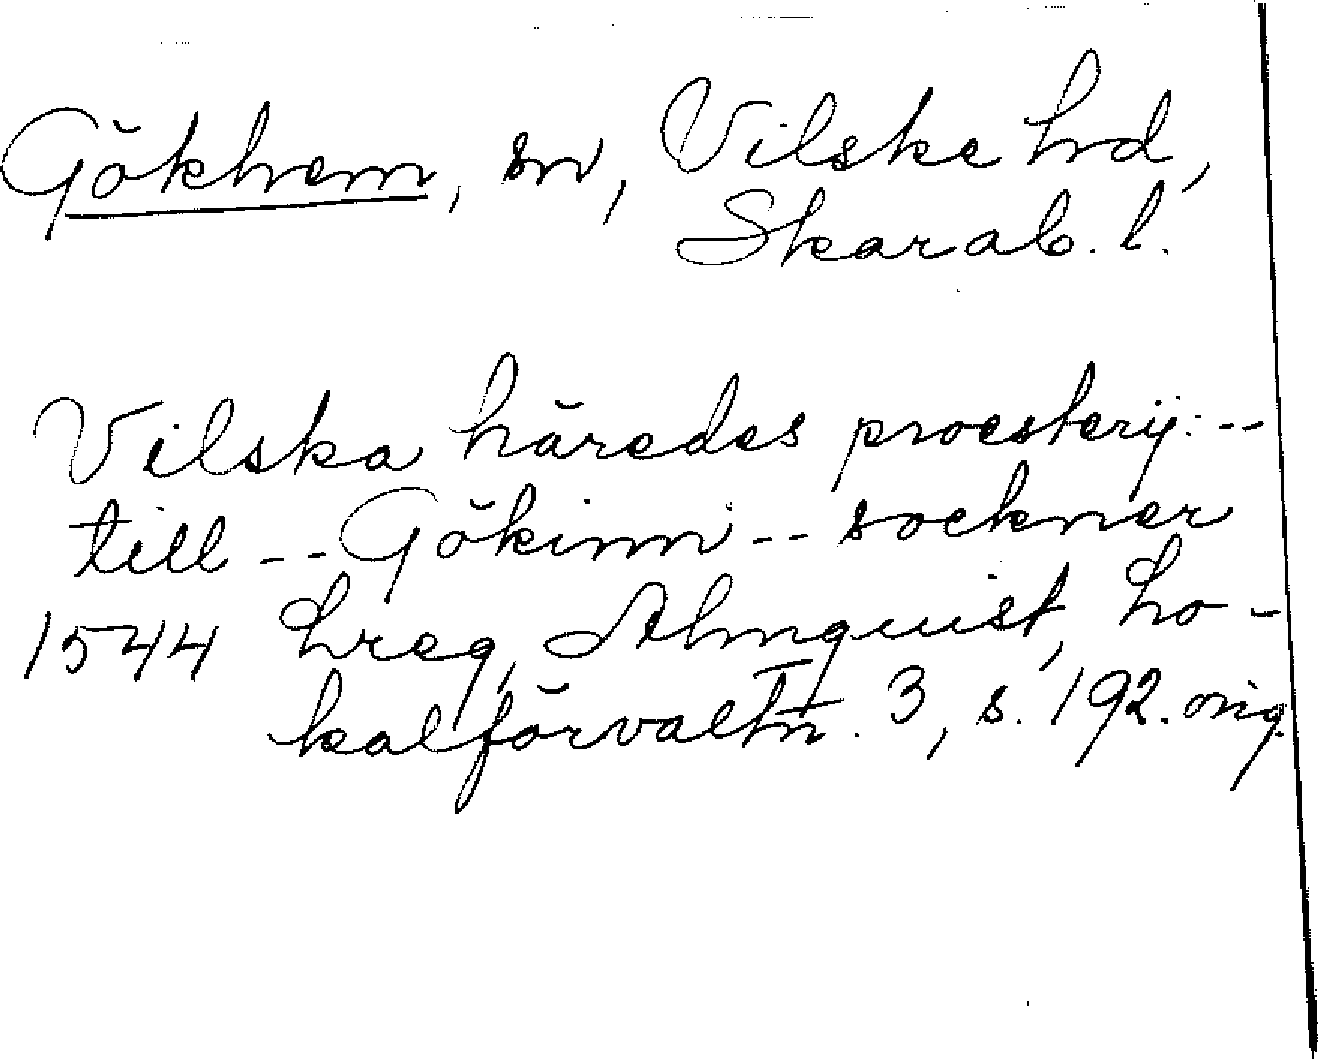 Gökhem, sn, Vilske hd,
Skarab. l.
Vilska häredes proesterij: --
till -- Gökinn -- sockner
1544 hreg, Almquist, Lo-
kalförvaltn. 3, s. 192. orig.